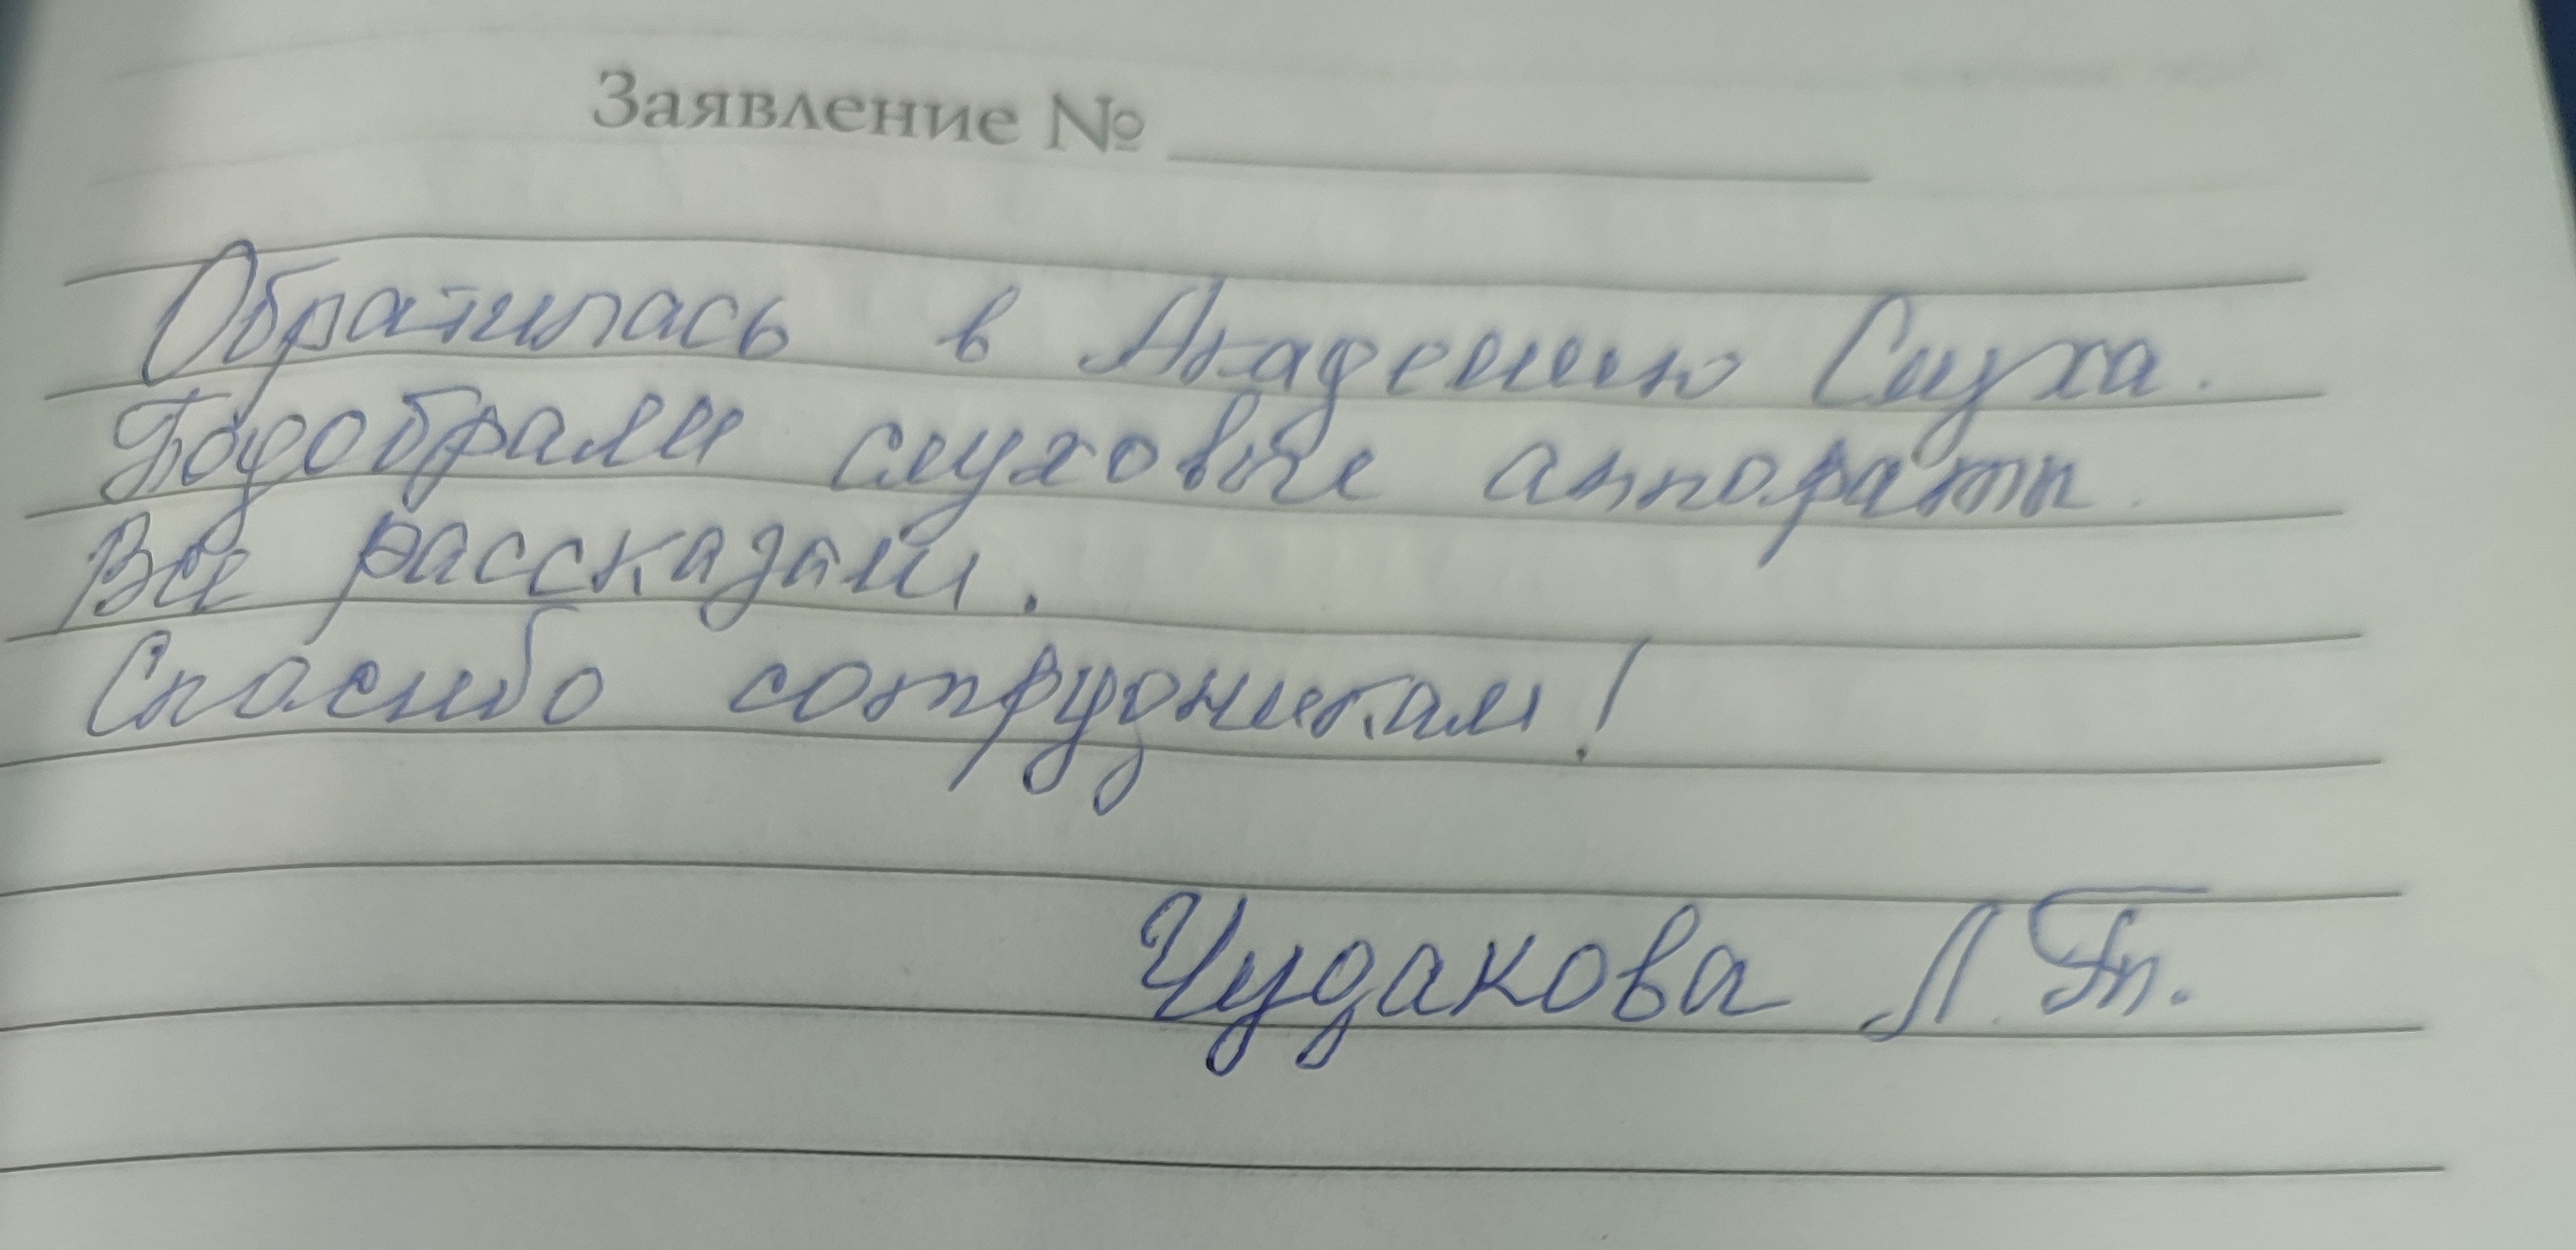 Заявление №
Обратилась в Академию Слуха.
Подобрали слуховые аппараты.
Все рассказали.
Спасибо сотрудникам!
Чудакова Л. П.